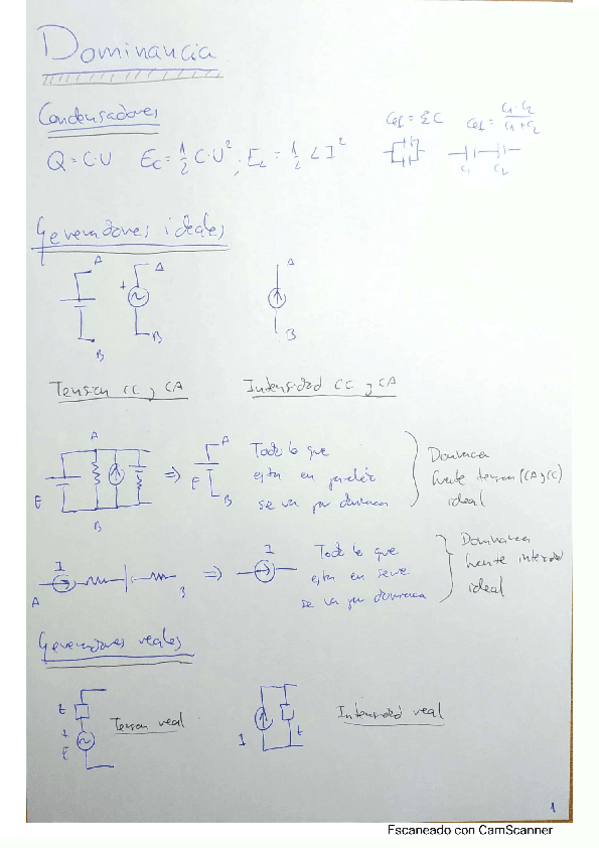 Dominancia
Condensadores
Q = C·U Ec = 1/2 C·U² ; EL = 1/2 L I²
Ceq = ΣC Ceq = C1·C2 / C1+C2
C1 C2
Generadores ideales
A A A
+
B B B
Tension CC y CA Intensidad CC y CA
A
E
B
⇒
A
E
B
Todo lo que
esta en paralelo
se va por dominancia
Dominancia
fuente tension (CA y CC)
ideal
I
A B
⇒
I
Todo lo que
esta en serie
se va por dominancia
Dominancia
fuente intensidad
ideal
Generadores reales
+
E
Tension real
I
Intensidad real
1
Escaneado con CamScanner